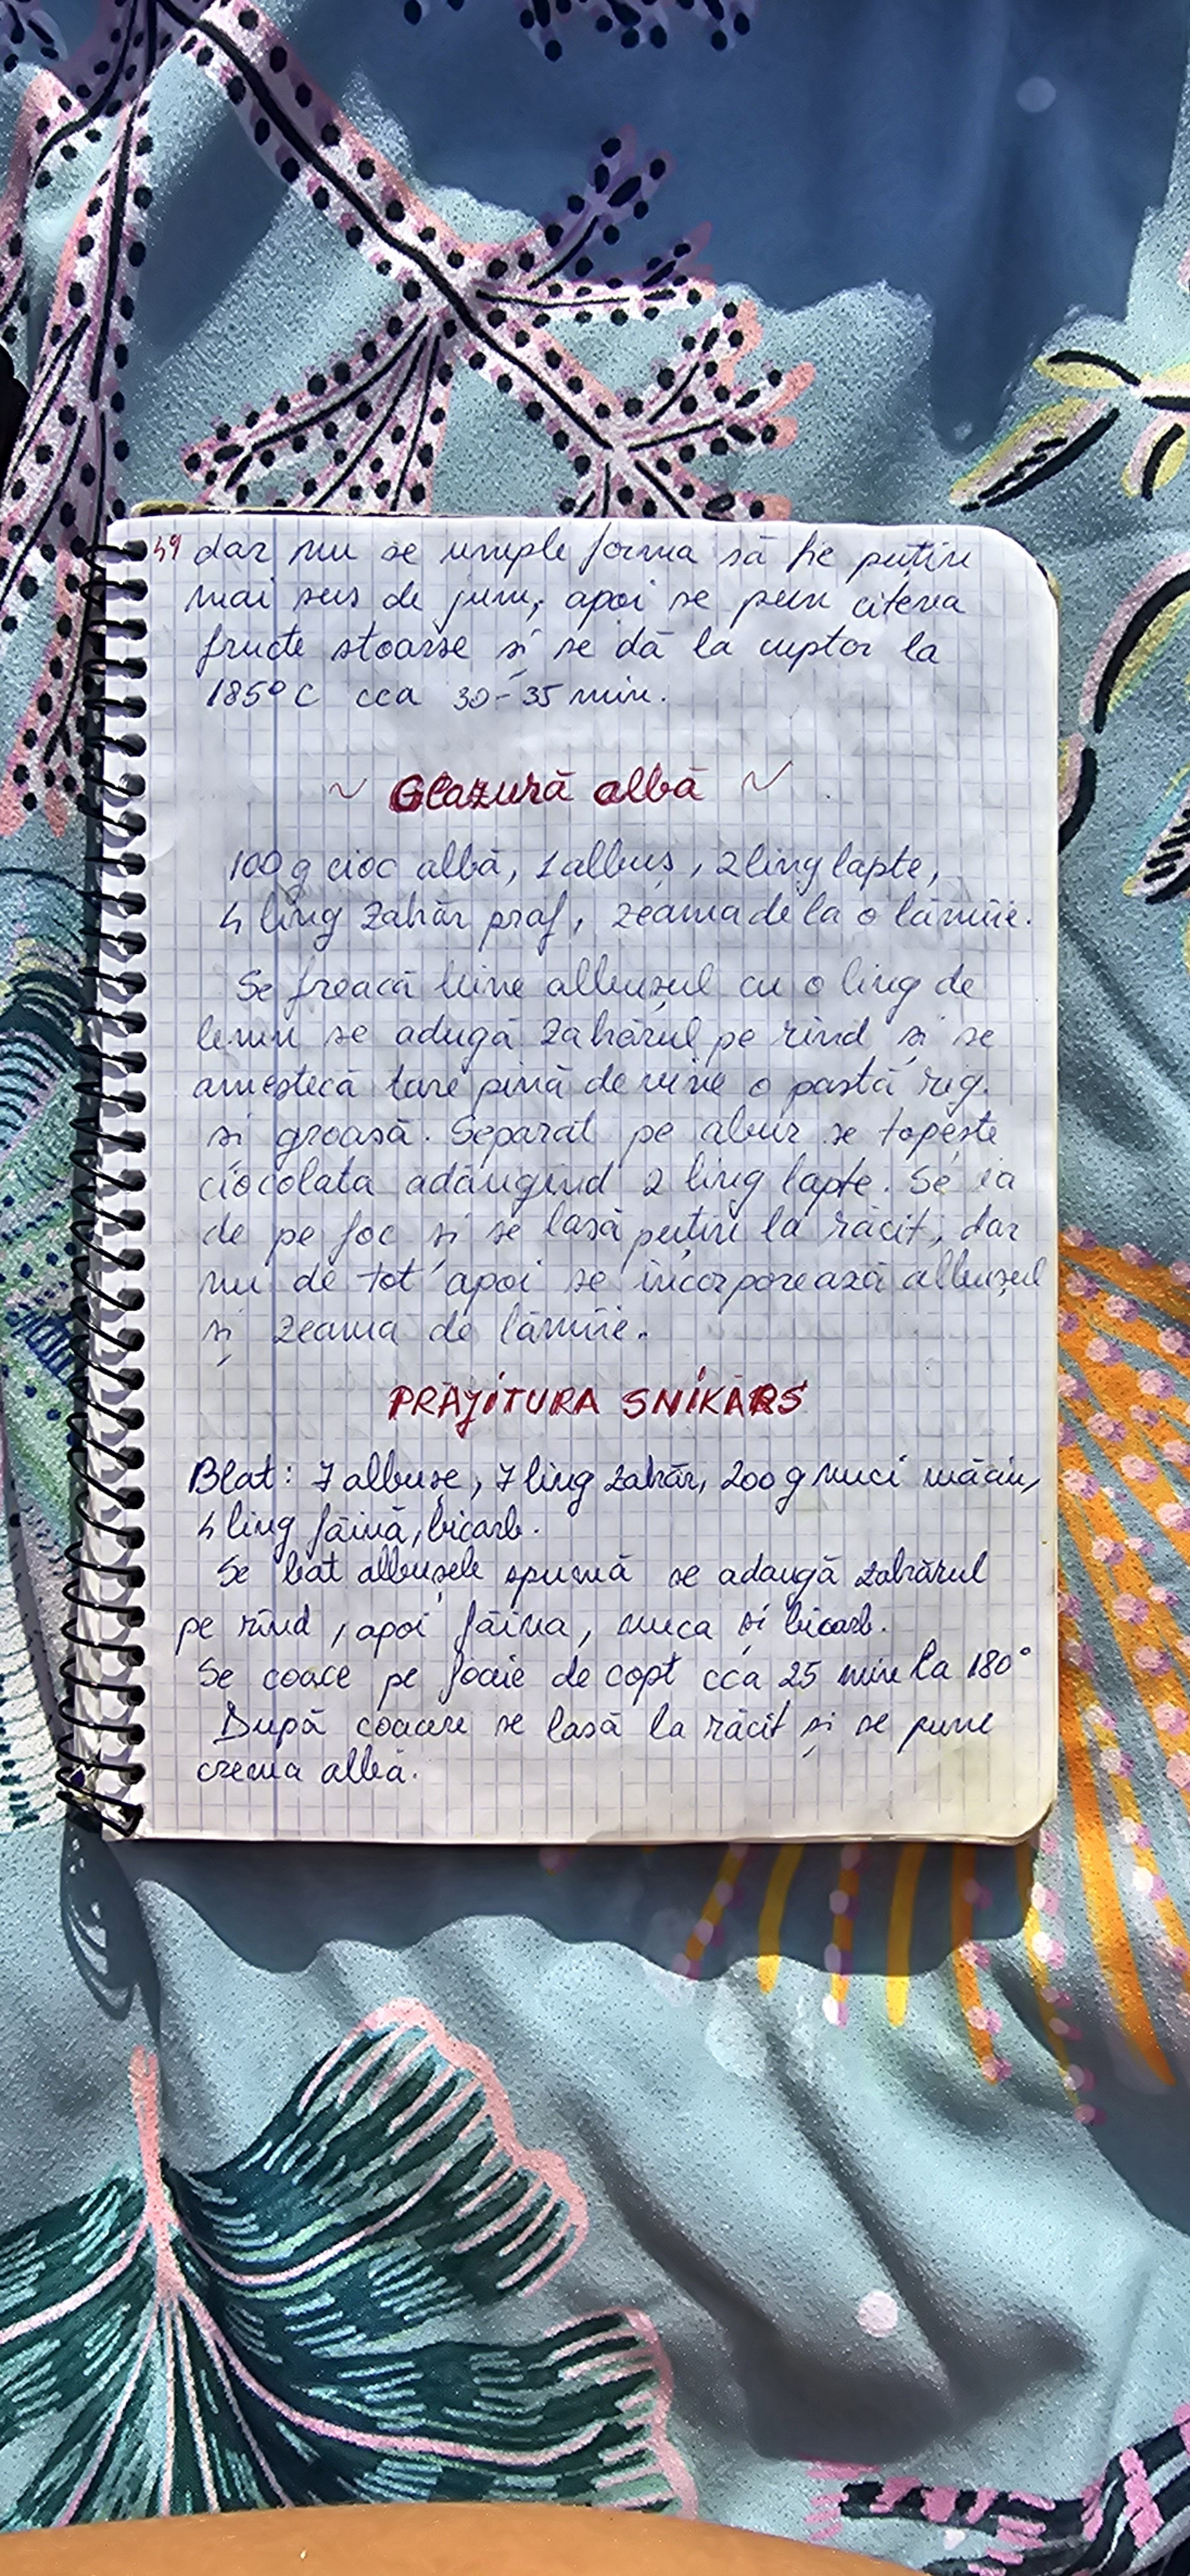 49 dar nu se umple forma să fie puțin
mai sus de jum, apoi se pun cîteva
fructe stoarse și se dă la cuptor la
185° C cca 30-35 min.
~ Glazură albă ~
100 g cioc albă, 1 albuș, 2 ling lapte,
4 ling zahăr praf, zeama de la o lămîie.
Se freacă bine albușul cu o ling de
lemn se adugă zahărul pe rînd și se
amestecă tare pînă devine o pastă rig.
și groasă. Separat pe abur se topește
ciocolata adăugînd 2 ling lapte. Se ia
de pe foc și se lasă puțin la răcit, dar
nu de tot apoi se incorporează albușul
și zeama de lămîie.
PRĂJITURA SNIKĂRS
Blat: 7 albușe, 7 ling zahăr, 200 g nuci măcin,
4 ling făină, bicarb.
Se bat albușele spumă se adaugă zahărul
pe rînd, apoi făina, nuca și bicarb.
Se coace pe foaie de copt cca 25 min la 180°
După coacere se lasă la răcit și se pune
crema albă.